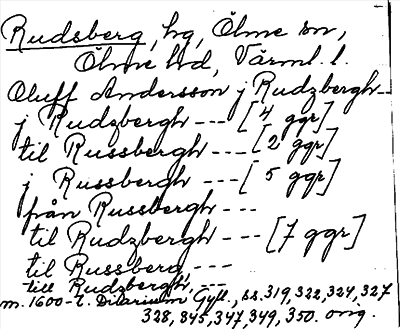 Rudsberg, hg, Ölme sn,
Ölme hd, Värml. l.
Oluff Andersson j Rudzbergh
j Rudzbergh --- [4 ggr]
til Russbergh --- [2 ggr]
j Russbergh --- [5 ggr]
från Russbergh ---
til Rudzbergh --- [7 ggr]
til Russberg ---
till Rudzbergh, ---
m. 1600-t. Diarium Gyll., ss. 319, 322, 324, 327
328, 345, 347, 349, 350. orig.